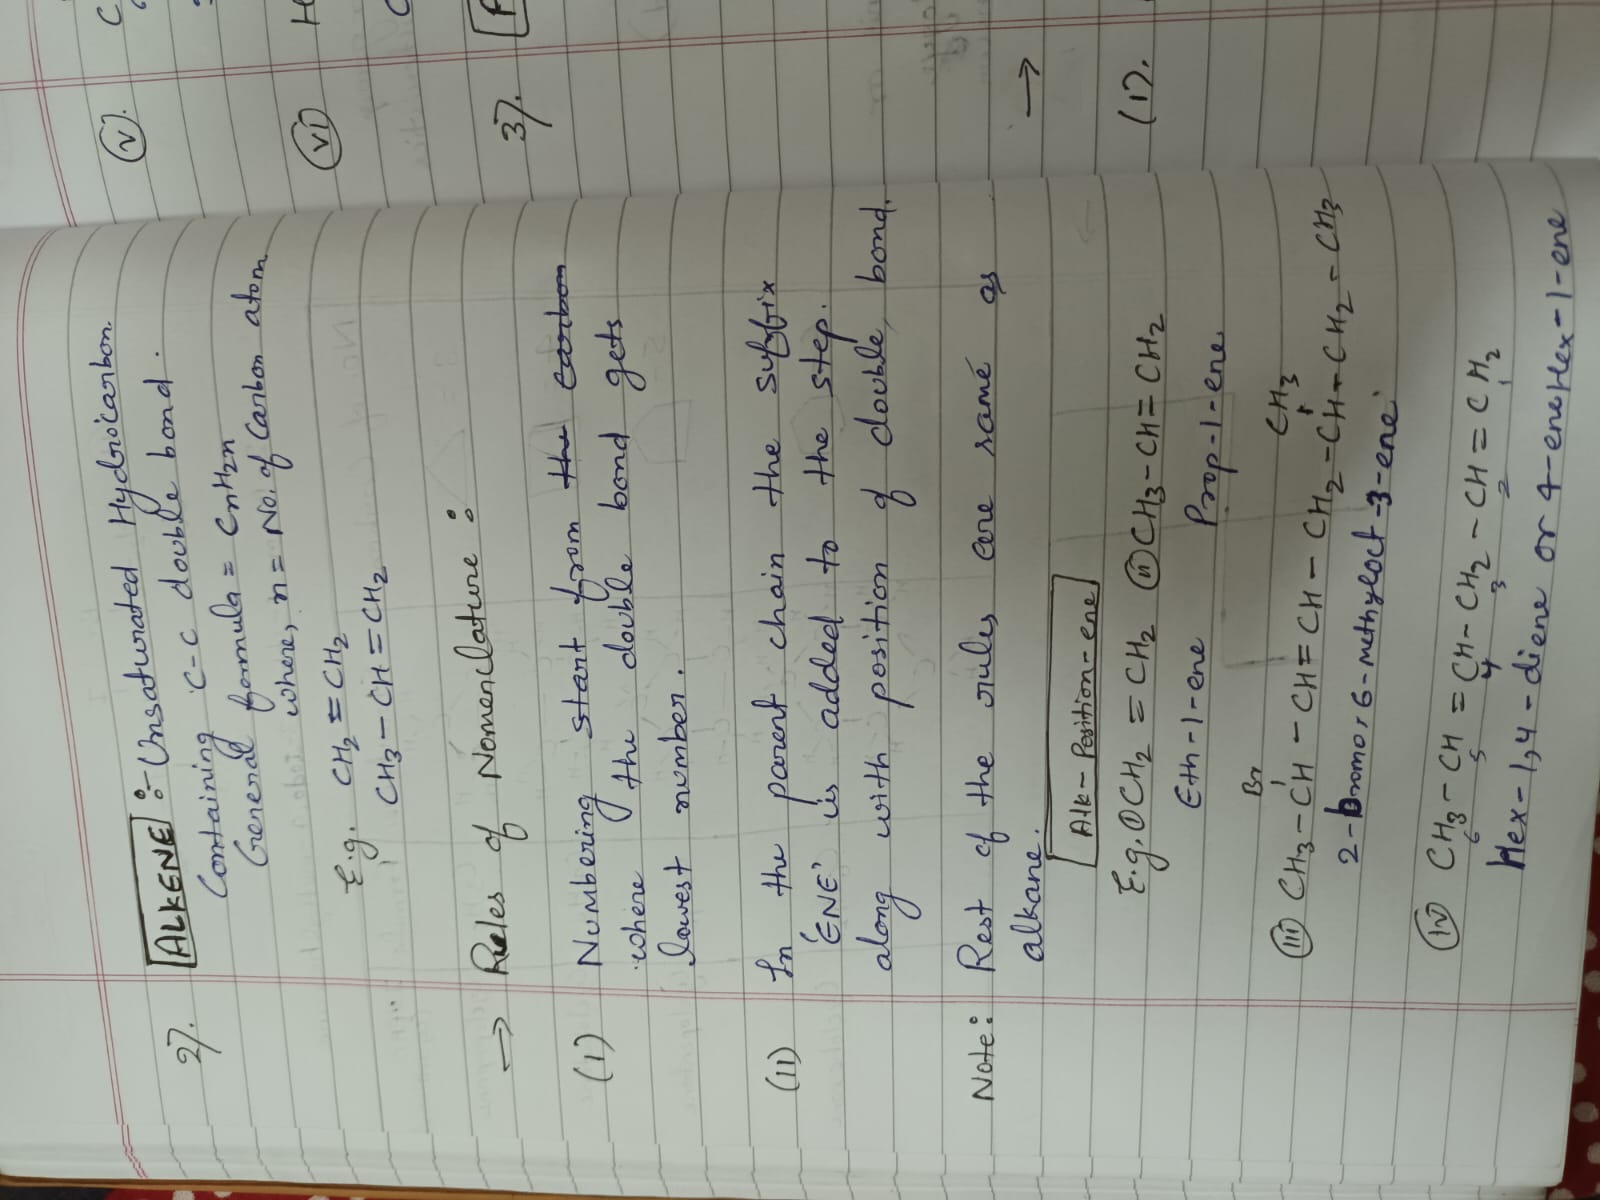 2). ALKENE :- Unsaturated Hydrocarbon.
Containing C-C double bond.
General formula = CnH2n
where, n = No. of Carbon atom
E.g. CH2 = CH2
CH3 - CH = CH2
→ Rules of Nomenclature :
(i) Numbering start from the carbon
where the double bond gets
lowest number.
(ii) In the parent chain the suffix
'ENE' is added to the step.
along with position of double bond.
Note: Rest of the rules are same as
alkane.
Alk - Position - ene
E.g. ① CH2 = CH2 ② CH3 - CH = CH2
Eth-1-ene Prop-1-ene
Br CH3
(iii) CH3 - CH - CH = CH - CH2 - CH - CH2 - CH3
2-Bromo, 6-methyloct-3-ene
(iv) CH3 - CH = CH - CH2 - CH = CH2
6 5 4 3 2 1
Hex-1,4-diene or 4-ene Hex-1-ene
(v). C
(vi) H
C
3).
→
(1).